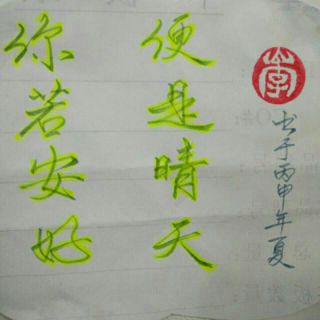 你若安好
便是晴天
书于丙申年夏